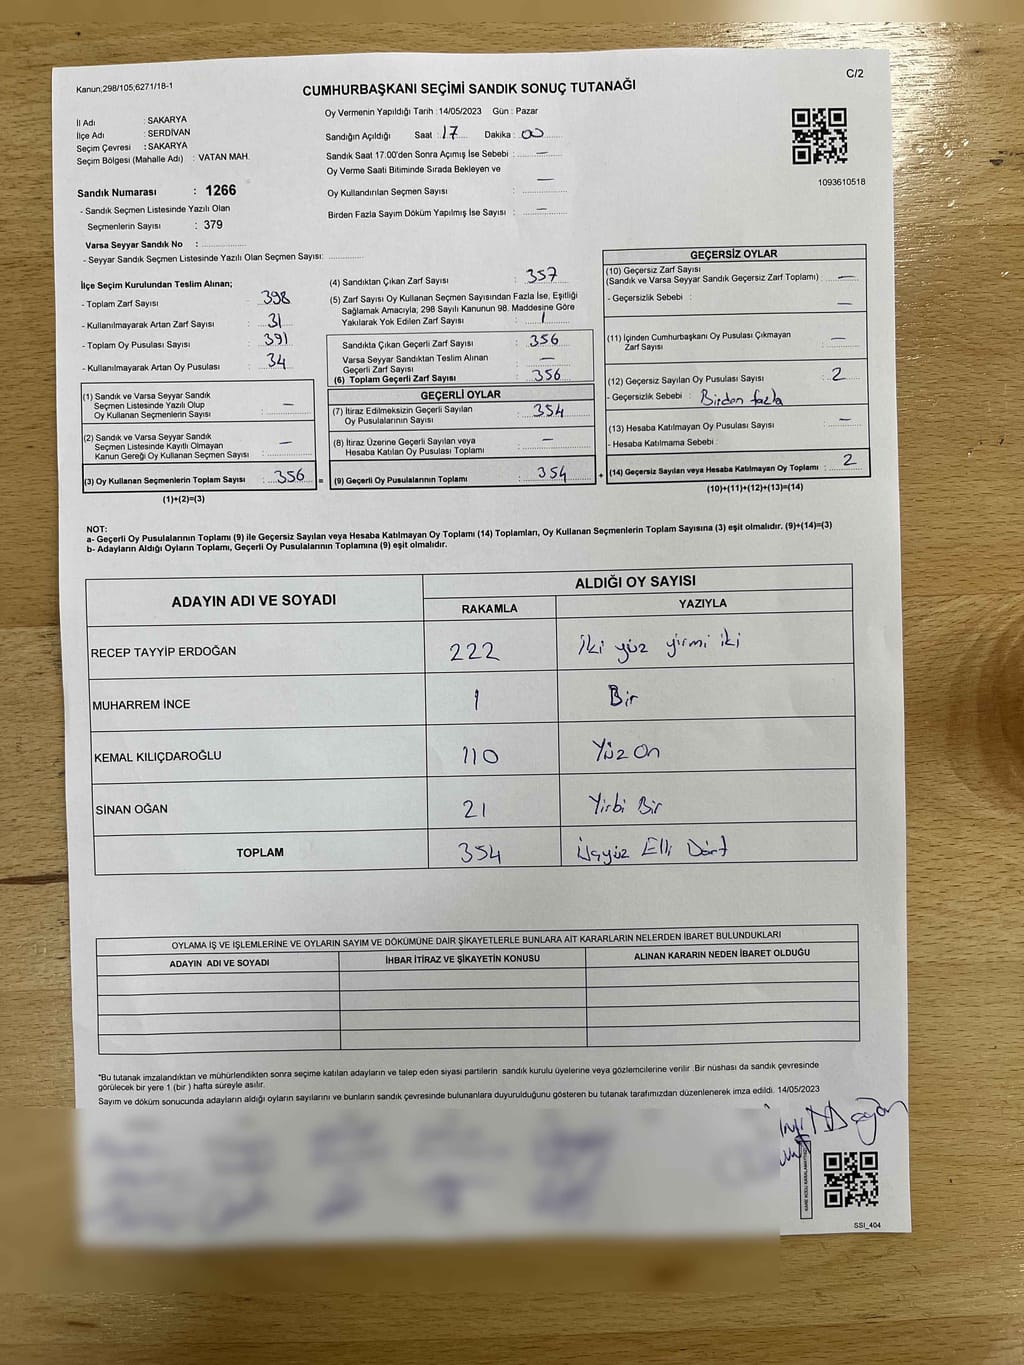 Kanun;298/105;6271/18-1
C/2
CUMHURBAŞKANI SEÇİMİ SANDIK SONUÇ TUTANAĞI
Oy Vermenin Yapıldığı Tarih : 14/05/2023 Gün : Pazar
İl Adı : SAKARYA
İlçe Adı : SERDİVAN
Seçim Çevresi : SAKARYA
Seçim Bölgesi (Mahalle Adı) : VATAN MAH.
Sandığın Açıldığı Saat : 17 Dakika : 00
Sandık Saat 17:00'den Sonra Açımış İse Sebebi : —
Oy Verme Saati Bitiminde Sırada Bekleyen ve
Oy Kullandırılan Seçmen Sayısı : —
Birden Fazla Sayım Döküm Yapılmış İse Sayısı : —
1093610518
Sandık Numarası : 1266
- Sandık Seçmen Listesinde Yazılı Olan
Seçmenlerin Sayısı : 379
Varsa Seyyar Sandık No :
- Seyyar Sandık Seçmen Listesinde Yazılı Olan Seçmen Sayısı:
İlçe Seçim Kurulundan Teslim Alınan;
- Toplam Zarf Sayısı : 398
- Kullanılmayarak Artan Zarf Sayısı : 31
- Toplam Oy Pusulası Sayısı : 391
- Kullanılmayarak Artan Oy Pusulası : 34
(1) Sandık ve Varsa Seyyar Sandık
Seçmen Listesinde Yazılı Olup
Oy Kullanan Seçmenlerin Sayısı : —
(2) Sandık ve Varsa Seyyar Sandık
Seçmen Listesinde Kayıtlı Olmayan
Kanun Gereği Oy Kullanan Seçmen Sayısı : —
(3) Oy Kullanan Seçmenlerin Toplam Sayısı : 356 =
(1)+(2)=(3)
(4) Sandıktan Çıkan Zarf Sayısı : 357
(5) Zarf Sayısı Oy Kullanan Seçmen Sayısından Fazla İse, Eşitliği
Sağlamak Amacıyla; 298 Sayılı Kanunun 98. Maddesine Göre
Yakılarak Yok Edilen Zarf Sayısı : 1
Sandıkta Çıkan Geçerli Zarf Sayısı : 356
Varsa Seyyar Sandıktan Teslim Alınan
Geçerli Zarf Sayısı : —
(6) Toplam Geçerli Zarf Sayısı : 356
GEÇERLİ OYLAR
(7) İtiraz Edilmeksizin Geçerli Sayılan
Oy Pusulalarının Sayısı : 354
(8) İtiraz Üzerine Geçerli Sayılan veya
Hesaba Katılan Oy Pusulası Toplamı : —
(9) Geçerli Oy Pusulalarının Toplamı : 354 +
GEÇERSİZ OYLAR
(10) Geçersiz Zarf Sayısı
(Sandık ve Varsa Seyyar Sandık Geçersiz Zarf Toplamı) : —
- Geçersizlik Sebebi : —
(11) İçinden Cumhurbaşkanı Oy Pusulası Çıkmayan
Zarf Sayısı : —
(12) Geçersiz Sayılan Oy Pusulası Sayısı : 2
- Geçersizlik Sebebi : Birden fazla
(13) Hesaba Katılmayan Oy Pusulası Sayısı : —
- Hesaba Katılmama Sebebi :
(14) Geçersiz Sayılan veya Hesaba Katılmayan Oy Toplamı : 2
(10)+(11)+(12)+(13)=(14)
NOT:
a- Geçerli Oy Pusulalarının Toplamı (9) ile Geçersiz Sayılan veya Hesaba Katılmayan Oy Toplamı (14) Toplamları, Oy Kullanan Seçmenlerin Toplam Sayısına (3) eşit olmalıdır. (9)+(14)=(3)
b- Adayların Aldığı Oyların Toplamı, Geçerli Oy Pusulalarının Toplamına (9) eşit olmalıdır.
ADAYIN ADI VE SOYADI
ALDIĞI OY SAYISI
RAKAMLA YAZIYLA
RECEP TAYYİP ERDOĞAN 222 İki yüz yirmi iki
MUHARREM İNCE 1 Bir
KEMAL KILIÇDAROĞLU 110 Yüz On
SİNAN OĞAN 21 Yirbi Bir
TOPLAM 354 Üçyüz Elli Dört
OYLAMA İŞ VE İŞLEMLERİNE VE OYLARIN SAYIM VE DÖKÜMÜNE DAİR ŞİKAYETLERLE BUNLARA AİT KARARLARIN NELERDEN İBARET BULUNDUKLARI
ADAYIN ADI VE SOYADI İHBAR İTİRAZ VE ŞİKAYETİN KONUSU ALINAN KARARIN NEDEN İBARET OLDUĞU
*Bu tutanak imzalandıktan ve mühürlendikten sonra seçime katılan adayların ve talep eden siyasi partilerin sandık kurulu üyelerine veya gözlemcilerine verilir. Bir nüshası da sandık çevresinde
görülecek bir yere 1 (bir ) hafta süreyle asılır.
Sayım ve döküm sonucunda adayların aldığı oyların sayılarını ve bunların sandık çevresinde bulunanlara duyurulduğunu gösteren bu tutanak tarafımızdan düzenlenerek imza edildi. 14/05/2023
SSI_404